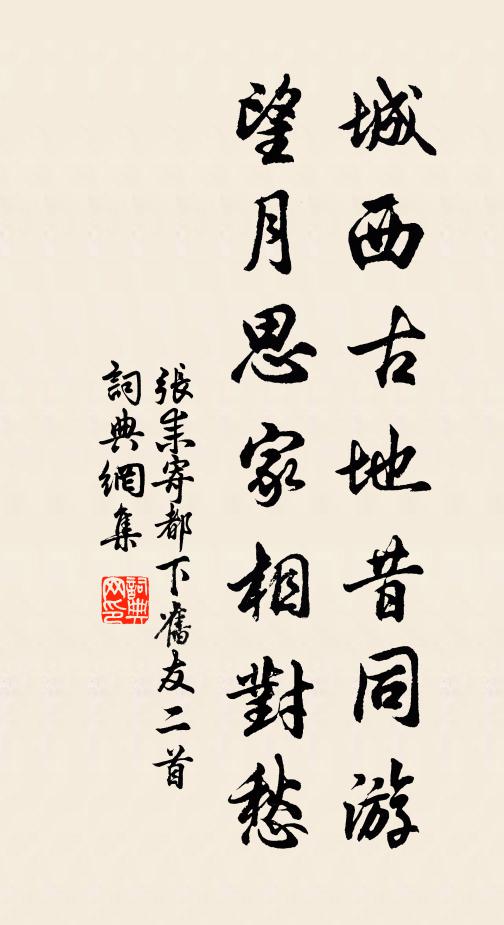 城西古地昔同游
望月思家相對愁
張耒寄都下舊友二首
詞典網集
詞典
网印